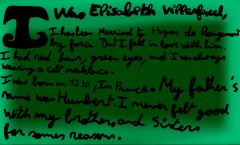 I Was Elisabeth Villarfasel,
I has been Married to Hugues de Rougemont
by force. But I fell in love with him.
I had red hair, green eyes, and I was always
wearing a celt necklace.
I was born in 1230, In France. My father's
name was Humbert. I never felt good
with my brother and Sisters
for some reasons.